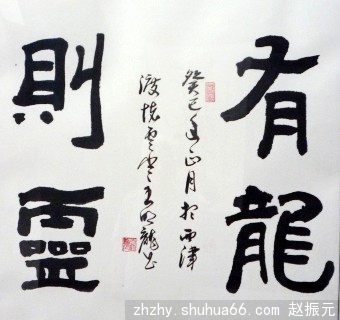 有龍
則靈
癸巳年正月於西津
渡懷雲堂王明龍書
zhzhy.shuhua66.com 赵振元